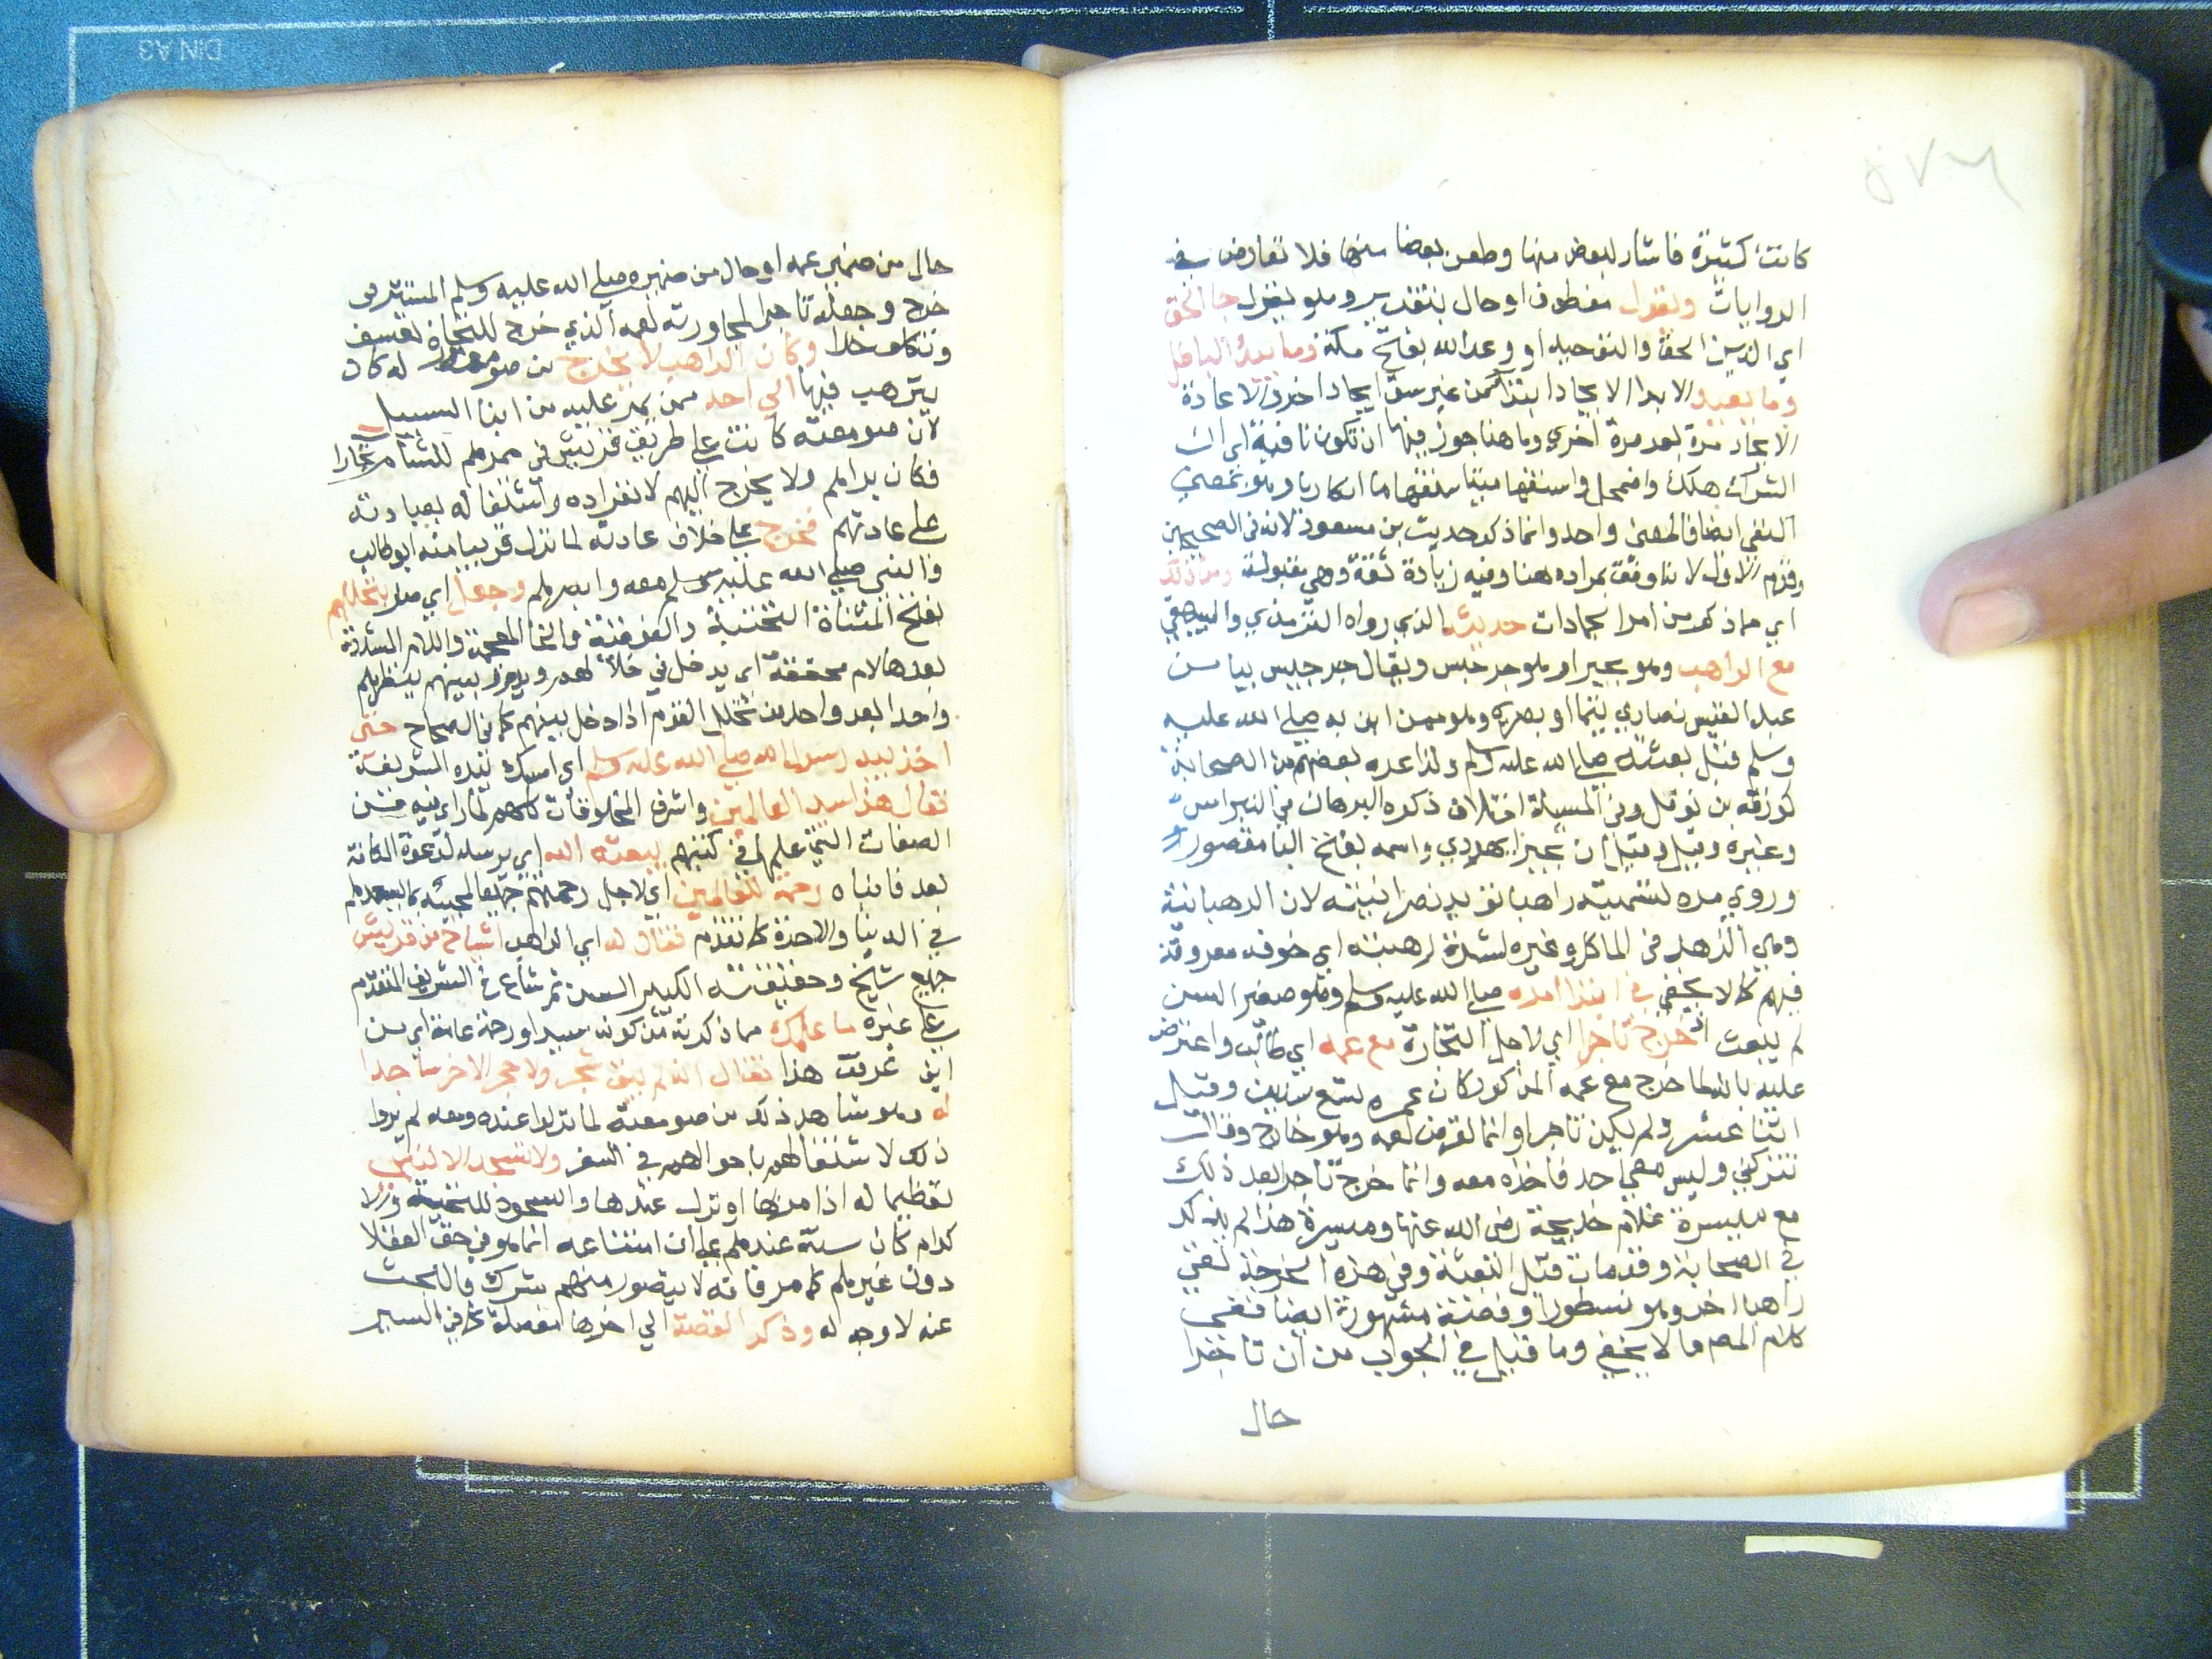 ٥٧٦
كانت كثيرة فاشار لبعض منها وطعن بعضا منها فلا تعارض بين
الروايات ويقول معطوف او حال بتقدير وهو يقول جا الحق
اي الدين الحق والتوحيد او وعد الله بفتح مكة وما يبدئ الباطل
وما يعيد الابدا الايجاد ابتداء من غير سبق ايجاد اخر والاعادة
الايجاد مرة بعد مرة اخري وما هنا جوز فيها ان تكون نافية اي ان
الشرك هلك واضمحل واستفهامية استفهاما انكاريا وهو بمعني
النفي ايضا فالمعني واحد وانما ذكر حديث بن مسعود لانه في الصحيحين
وقدم الاول لانه اوفق بمراده هنا وفيه زيادة ثقة وهي مقبولة ومن ذلك
اي مما ذكر من امر الجمادات حديثه الذي رواه الترمذي والبيهقي
مع الراهب وهو بحيرا وهو جرجيس ويقال جرجيس بيا من
عبد القيس نصاري تيما او بصري وهو ممن امن به صلي الله عليه
وسلم قبل بعثته صلي الله عليه وسلم ولذا عده بعضهم من الصحابة
كورقة بن نوفل وفي المسئلة اختلاف ذكره البرهان في النبراس
وغيره وقيل ان بحيرا يهودي واسمه بفتح البا مقصور
وروي مده لتسميته راهبا تويد نصرانيته لان الرهبانية
وهي الزهد في الماكل وغيره لشدة رهبته اي خوفه معروفة
فيهم كما لا يخفي في ابتدا امره صلي الله عليه وسلم وهو صغير السن
لم يبعث اذ خرج تاجرا اي لاجل التجارة مع عمه ابي طالب واعترض
عليه بانه لما خرج مع عمه المذكور كان عمره تسع سنين وقيل
اثنا عشر ولم يكن تاجرا وانما تعرض لعمه وهو خارج وقال
تتركني وليس معي احد فاخذه معه وانما خرج تاجرا بعد ذلك
مع ميسرة غلام خديجة رضي الله عنها وميسرة هذا لم يذكر
في الصحابة وقد مات قبل البعثة وفي هذه الخرجة لقي
راهبا اخر وهو نسطورا وقصته مشهورة ايضا ففي
كلام المص ما لا يخفي وما قيل في الجواب من ان تاجرا
حال
حال من ضمير عمه او حال من ضميره صلي الله عليه وسلم المستتر في
خرج وجعله تاجرا لمجاورته لعمه الذي خرج للتجارة تعسف
وتكلف جدا وكان الراهب لا يخرج من صومعته له كان
يترهب فيها الي احد ممن يمر عليه من ابنا السبيل
لان صومعته كانت علي طريق قريش في ممرهم للشام تجارا
فكان يراهم ولا يخرج اليهم لانفراده واشتغاله بعبادته
علي عادتهم فخرج علي خلاف عادته لما نزل قريبا منه ابو طالب
والنبي صلي الله عليه وسلم معه وابصرهم وجعل اي صار يتخللهم
بفتح المثناة التحتية والفوقية والخا المعجمة واللام المشددة
بعدها لام مخففة اي يدخل في خلالهم ويمر بينهم ينظرهم
واحدا بعد واحد من تخلل القوم اذا دخل بينهم كما في الصحاح حتي
اخذ بيد رسول الله صلي الله عليه وسلم اي امسك يده الشريفة
فقال هذا سيد العالمين واشرف المخلوقات كلهم لما راي فيه من
الصفات التي علمها في كتبهم يبعثه الله اي يرسله لدعوة الكافة
بعد فانباه رحمة للعالمين اي لاجل رحمتهم جميعا لمجيئه بما يسعدهم
في الدنيا والاخرة كما تقدم فقال له اي الراهب اشياخ من قريش
جمع شيخ وحقيقته الكبير السن ثم شاع في الشريف المتقدم
علي غيره ما علمك مما ذكرته من كونه سيدا ورحمة عامة اي من
اين عرفت هذا فقال انه لم يبق شجر ولا حجر الا خر ساجدا
له وهو شاهد ذلك من صومعته لما نزلوا عنده ومعه لم يروا
ذلك لاشتغالهم باحوالهم في السفر ولا تسجد الا لنبي
تعظيما له اذا مر بها او نزل عندها والسجود للتحية والا
كرام كان سنة عندهم علي ان امتناعه انما هو في حق العقلا
دون غيرهم كما مر فانه لا يتصور منهم شرك فالبحث
عنه لا وجه له وذكر القصة الي اخرها مفصلة كما في السير